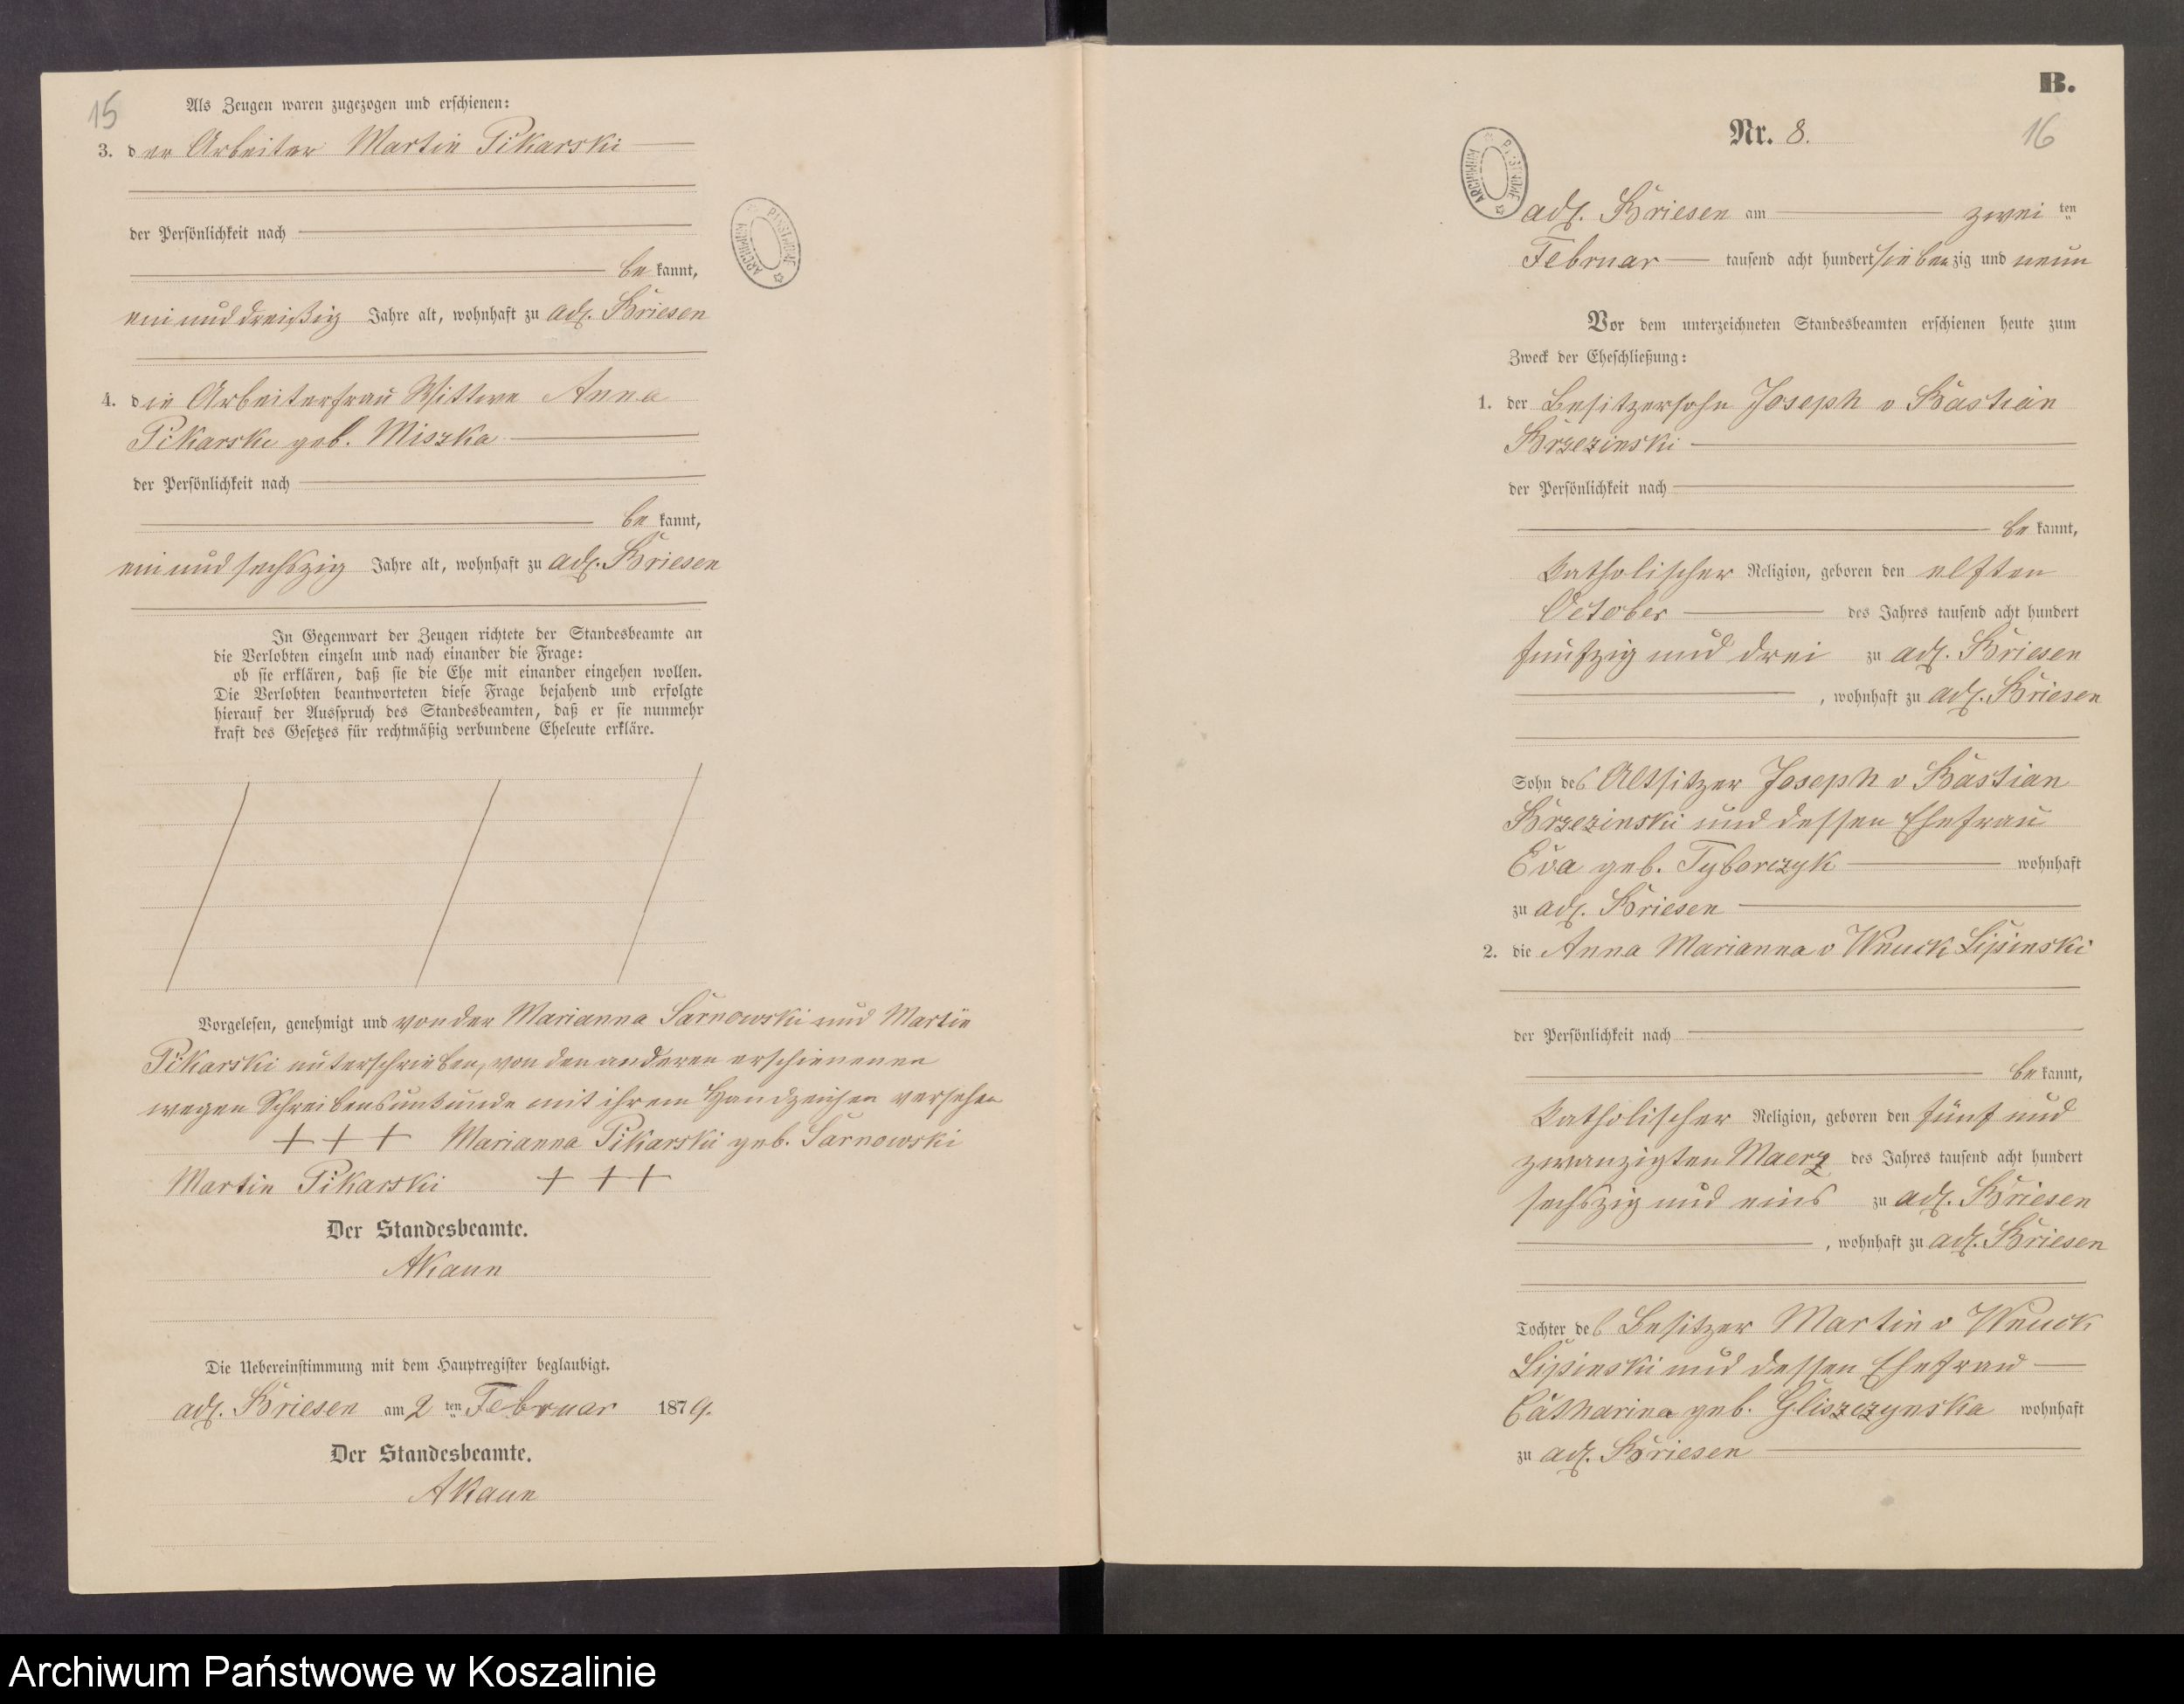 15
Als Zeugen waren zugezogen und erschienen:
3. der Arbeiter Martin Pikarski
der Persönlichkeit nach
be kannt,
ein und dreißig Jahre alt, wohnhaft zu adl. Briesen
4. die Arbeiterfrau Wittwe Anna
Pikarski geb. Miszka
der Persönlichkeit nach
be kannt,
ein und sechszig Jahre alt, wohnhaft zu adl. Briesen
In Gegenwart der Zeugen richtete der Standesbeamte an
die Verlobten einzeln und nach einander die Frage:
ob sie erklären, daß sie die Ehe mit einander eingehen wollen.
Die Verlobten beantworteten diese Frage bejahend und erfolgte
hierauf der Ausspruch des Standesbeamten, daß er sie nunmehr
kraft des Gesetzes für rechtmäßig verbundene Eheleute erkläre.
Vorgelesen, genehmigt und von der Marianna Sarnowski und Martin
Pikarski unterschrieben, von den anderen erschienenen
wegen Schreibensunkunde mit ihrem Handzeichen versehen
+ + + Marianna Pikarski geb. Sarnowski
Martin Pikarski + + +
Der Standesbeamte.
AKaun
Die Uebereinstimmung mit dem Hauptregister beglaubigt.
adl. Briesen am 2 ten Februar 1879.
Der Standesbeamte.
AKaun
ARCHIWUM PAŃSTWOWE
B.
Nr. 8.
16
ARCHIWUM PAŃSTWOWE
adl. Briesen am zwei ten
Februar tausend acht hundert siebenzig und neun
Vor dem unterzeichneten Standesbeamten erschienen heute zum
Zweck der Eheschließung:
1. der Besitzersohn Joseph v Bastian
Brzezinski
der Persönlichkeit nach
be kannt,
katholischer Religion, geboren den elften
October des Jahres tausend acht hundert
fünfzig und drei zu adl. Briesen
, wohnhaft zu adl. Briesen
Sohn des Altsitzer Joseph v Bastian
Brzezinski und dessen Ehefrau
Eva geb. Tyborczyk wohnhaft
zu adl. Briesen
2. die Anna Marianna v Wnuck Lipinski
der Persönlichkeit nach
be kannt,
katholischer Religion, geboren den fünf und
zwanzigten Maerz des Jahres tausend acht hundert
sechszig und eins zu adl. Briesen
, wohnhaft zu adl. Briesen
Tochter des Besitzer Martin v Wnuck
Lipinski und dessen Ehefrau
Catharina geb. Gliszczynska wohnhaft
zu adl. Briesen
Archiwum Państwowe w Koszalinie